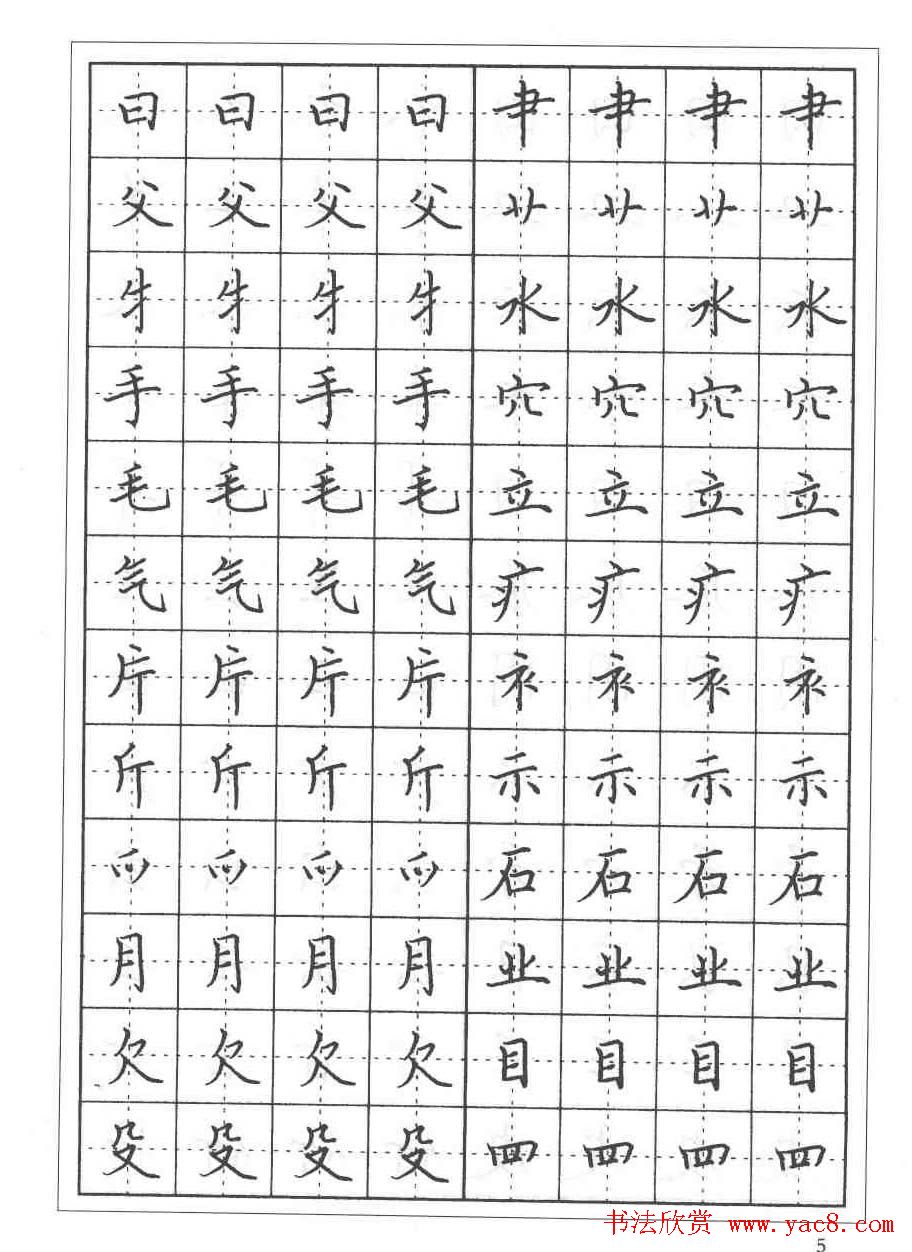 曰 曰 曰 曰 肀 肀 肀 肀
父 父 父 父
牜 牜 牜 牜 水 水 水 水
手 手 手 手 穴 穴 穴 穴
毛 毛 毛 毛 立 立 立 立
气 气 气 气 疒 疒 疒 疒
片 片 片 片 衤 衤 衤 衤
斤 斤 斤 斤 示 示 示 示
爫 爫 爫 爫 石 石 石 石
月 月 月 月 业 业 业 业
欠 欠 欠 欠 目 目 目 目
殳 殳 殳 殳 罒 罒 罒 罒
书法欣赏 www.yac8.com
5